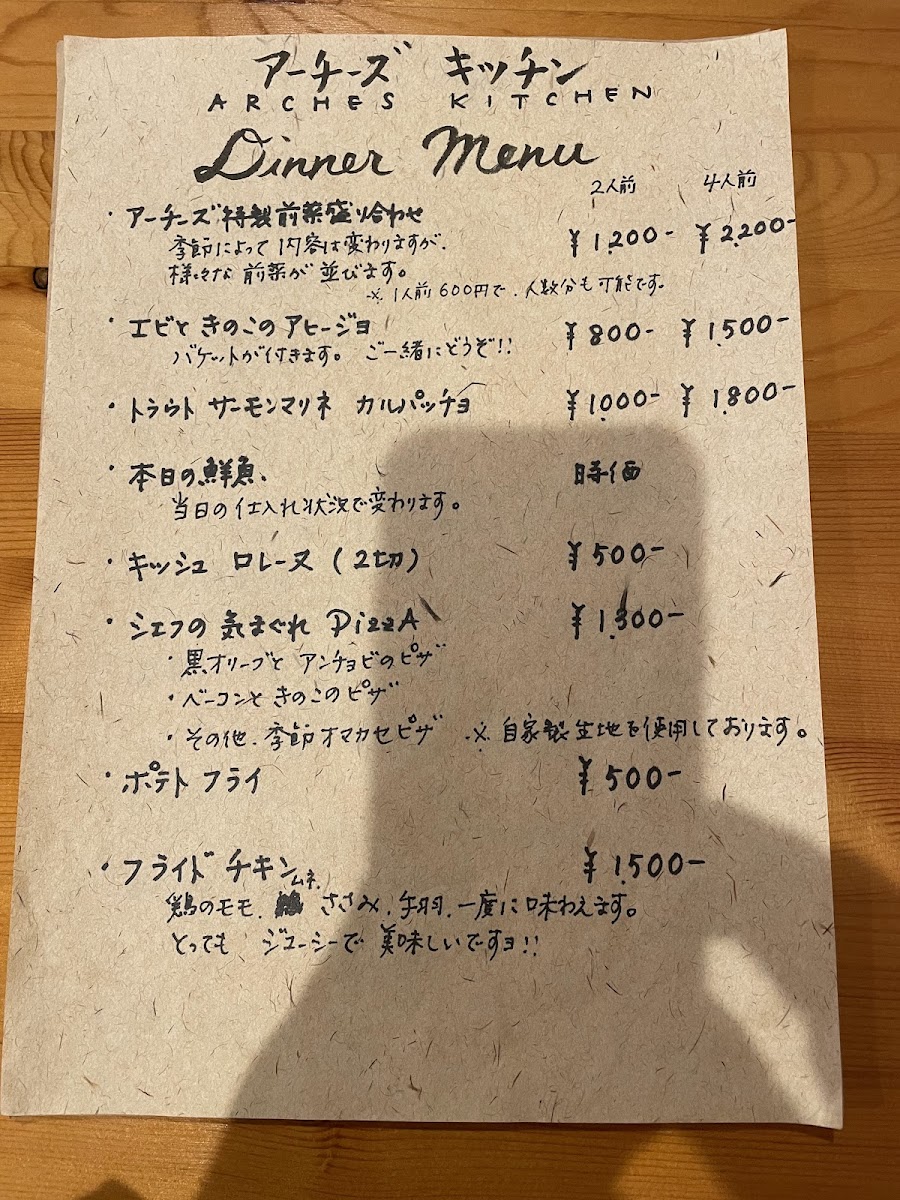 アーチーズ キッチン
ARCHES KITCHEN
Dinner Menu
2人前 4人前
・アーチーズ特製前菜盛り合わせ ¥1,200- ¥2,200-
季節によって内容は変わりますが、
様々な前菜が並びます。
※1人前600円で、人数分も可能です。
・エビときのこのアヒージョ ¥800- ¥1,500-
バケットが付きます。 ご一緒にどうぞ!!
・トラウトサーモンマリネ カルパッチョ ¥1,000- ¥1,800-
・本日の鮮魚、 時価
当日の仕入れ状況で変わります。
・キッシュ ロレーヌ (2切) ¥500-
・シェフの気まぐれ PizzA ¥1,300-
・黒オリーブと アンチョビのピザ
・ベーコンと きのこのピザ
・その他、季節オマカセピザ ※自家製生地を使用しております。
・ポテトフライ ¥500-
・フライド チキン ¥1,500-
ムネ、
鶏のモモ、 ささみ、手羽、一度に味わえます。
とっても ジューシーで 美味しいですョ!!